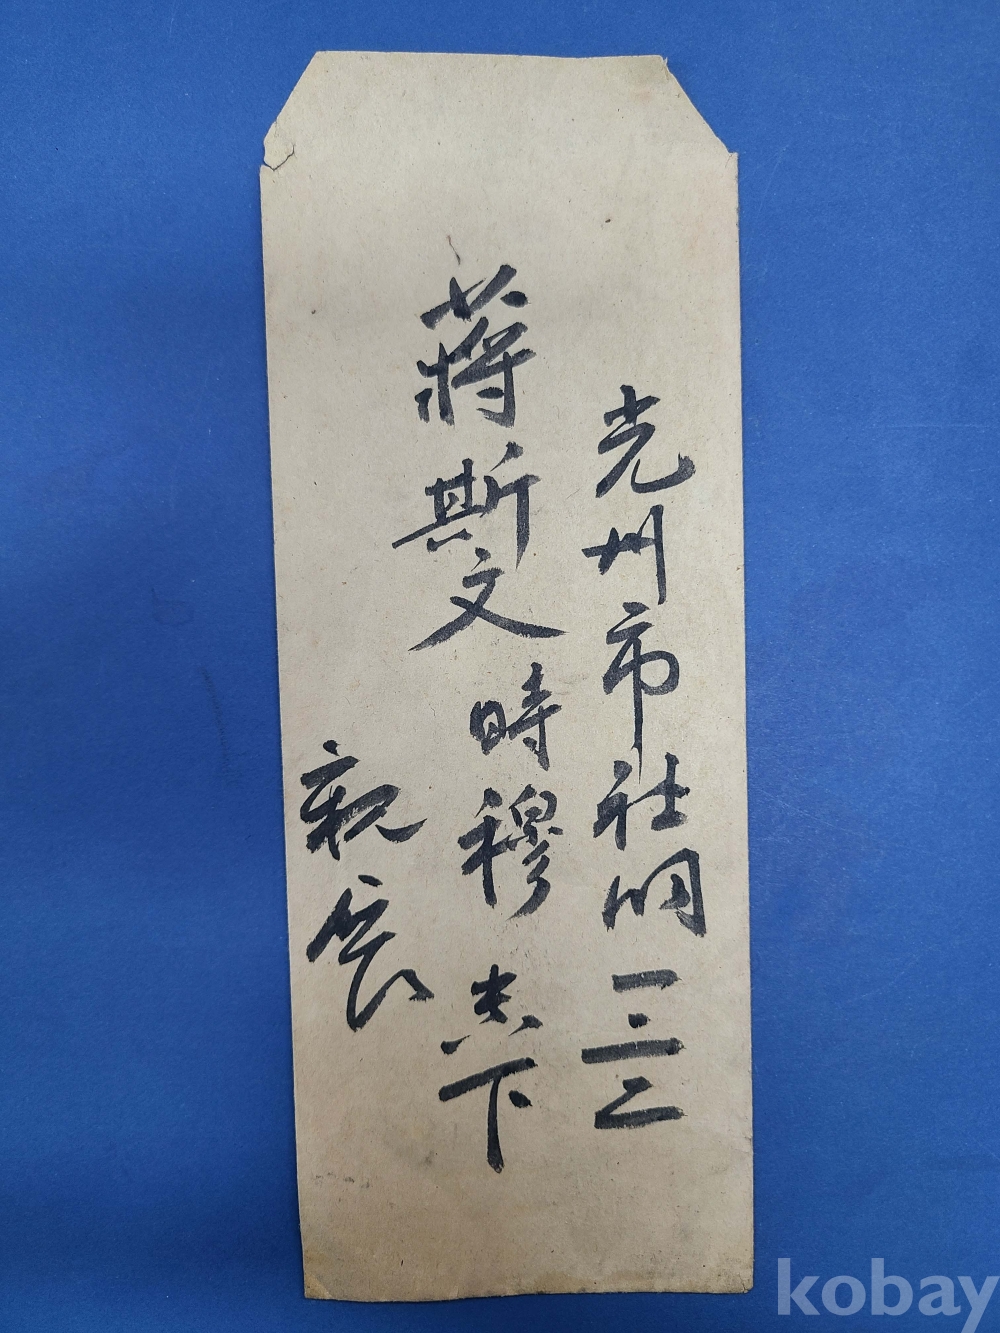 光州市社洞三二
蔣斯文時穆 下
親展
kobay